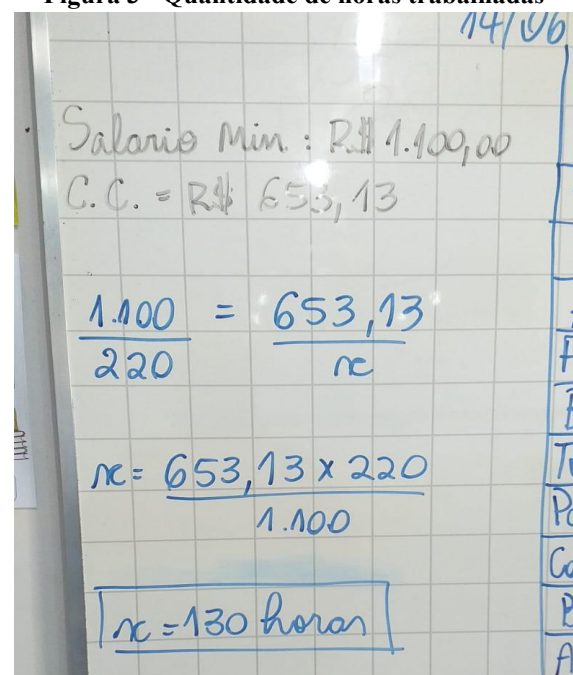 Quantidade de horas trabalhadas
14/06
Salario Min.: R$ 1.100,00
C.C. = R$ 653,13
1.100 = 653,13
220 x
x = 653,13 x 220
1.100
x = 130 horas